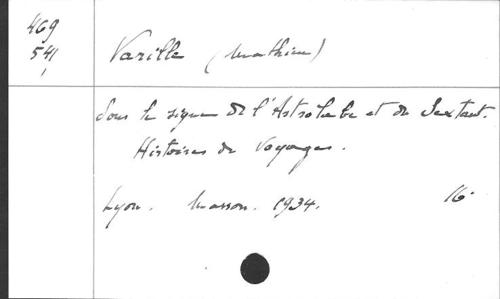 469
541
Varille (Mathieu)
Sous le signe de l'Astrolabe et du Sextant.
Histoires de Voyages.
Lyon. Masson. 1934. 16°